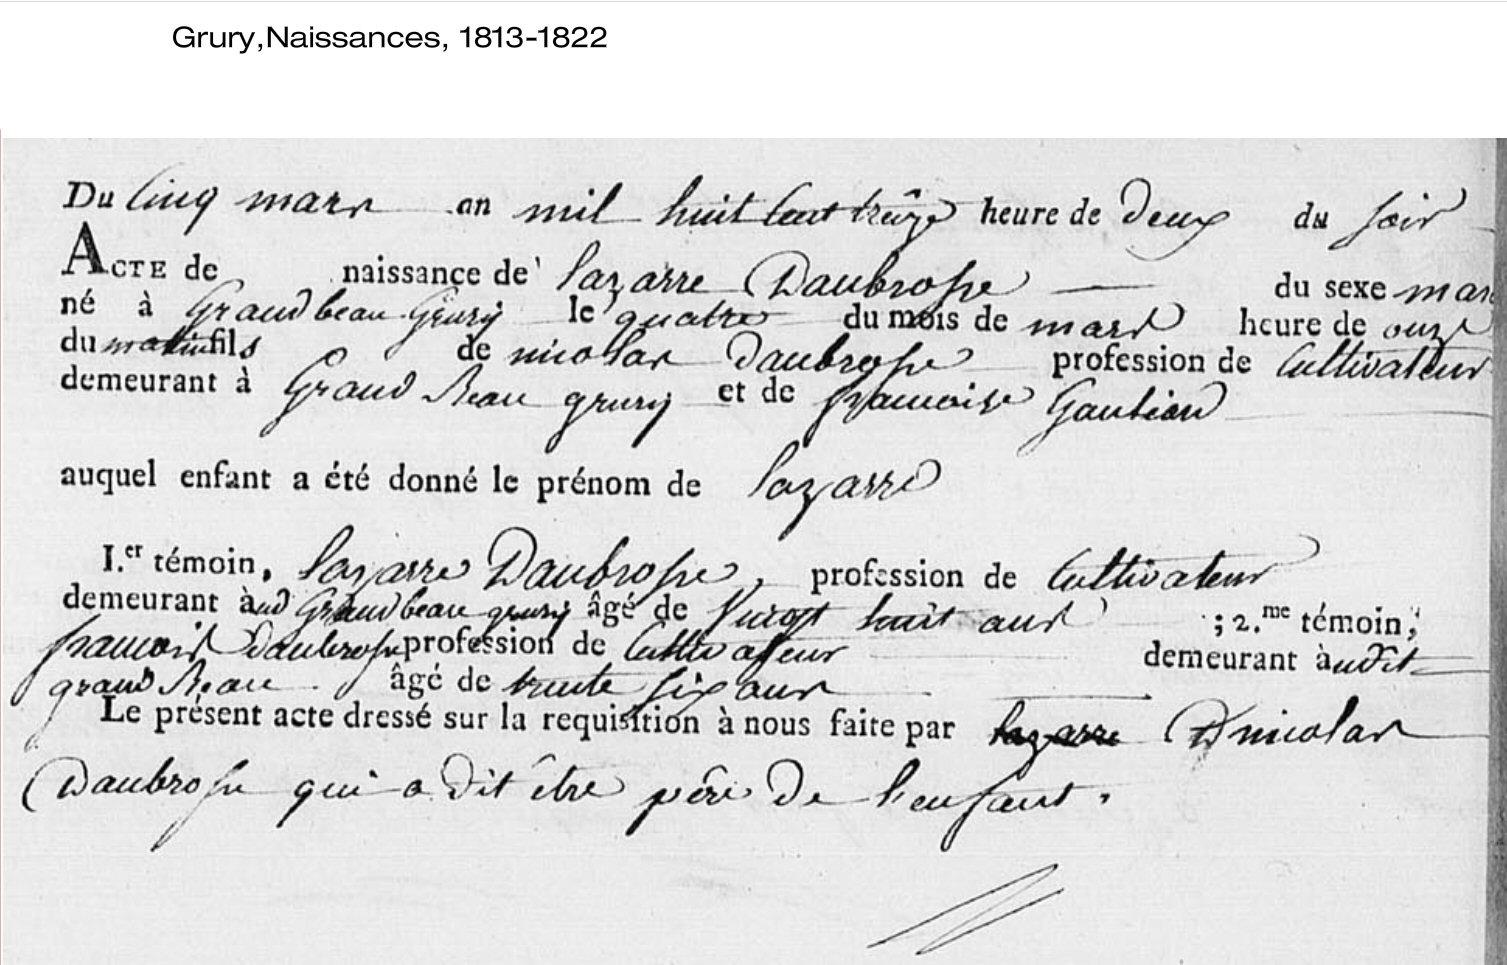 Grury,Naissances, 1813-1822
Du Cinq mars an mil huit Cent treize heure de Deux du soir
ACTE de naissance de lazarre Daubrosse du sexe mas
né à Grandbeau Grury le quatre du mois de mars heure de onze
du matin fils de nicolas Daubrosse profession de Cultivateur
demeurant à Grand Beau grury et de francoise Gautier
auquel enfant a été donné le prénom de lazarre
I.er témoin, lazarre Daubrosse, profession de Cultivateur
demeurant àud Grandbeau grury âgé de Vingt huit ans ; 2.me témoin,
francois Daubrosse profession de Cultivateur demeurant àudit
grand Beau âgé de trente six ans
Le présent acte dressé sur la requisition à nous faite par lazarre nicolas
Daubrosse qui a dit être père de l'enfant.